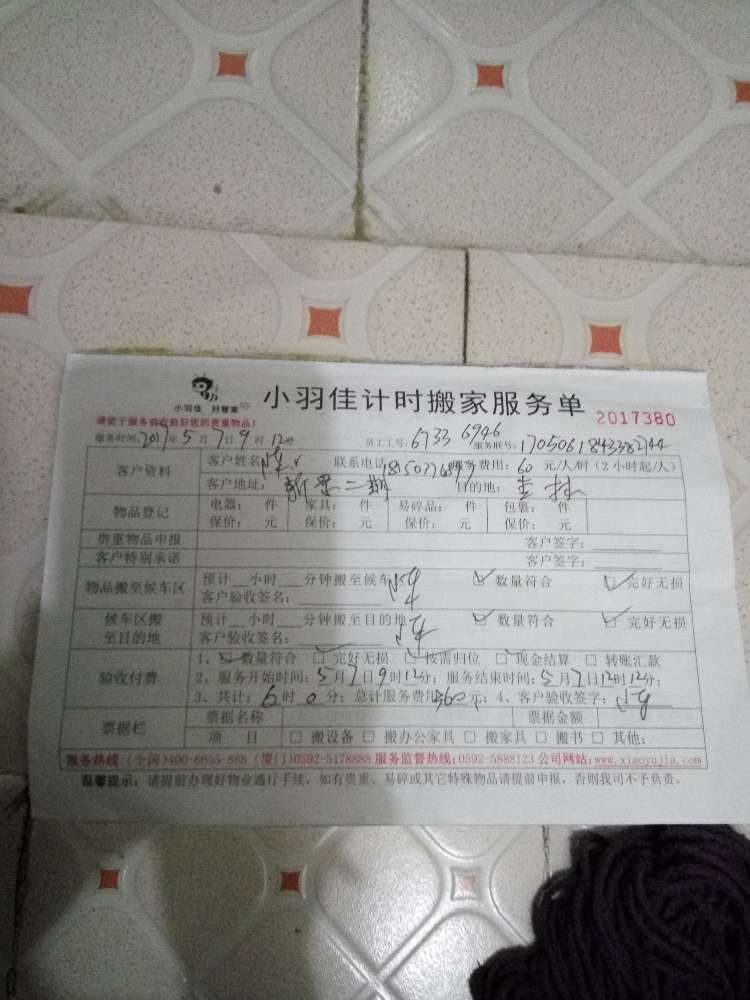 小羽佳 好管家
小羽佳计时搬家服务单
2017380
请您于服务前收验好您的贵重物品！
服务时间：2017年5月7日9时12分 员工工号：6733 6946 服务联号：
客户资料 客户姓名 陈 联系电话 服务费用：60 元/人/时（2小时起/人）
客户地址： 二期 目的地：
物品登记 电器： 件 家具： 件 易碎品： 件 包裹： 件
保价： 元 保价： 元 保价： 元 保价： 元
贵重物品申报 客户签字：
客户特别承诺 客户签字：
物品搬至候车区 预计__小时___分钟搬至候车 数量符合 完好无损
客户验收签名：
候车区搬至目的地 预计__小时___分钟搬至目的地 数量符合 完好无损
客户验收签名：
验收付费 1、数量符合 □完好无损 □按需归位 □现金结算 □转账汇款
2、服务开始时间：5月7日9时12分；服务结束时间：5月7日12时12分；
3、共计：6时0分；总计服务费用：360元；4、客户验收签字：
票据栏 票据名称 票据金额
项 目 □搬设备 □搬办公家具 □搬家具 □搬书 □其他：
服务热线：（全国）400-6655-888（厦门）0592-5178888 服务监督热线：0592-5888123 公司网站：www.xiaoyujia.com
温馨提示：请提前办理好物业通行手续，如有贵重、易碎或其它特殊物品请提前申报，否则我司不予负责。